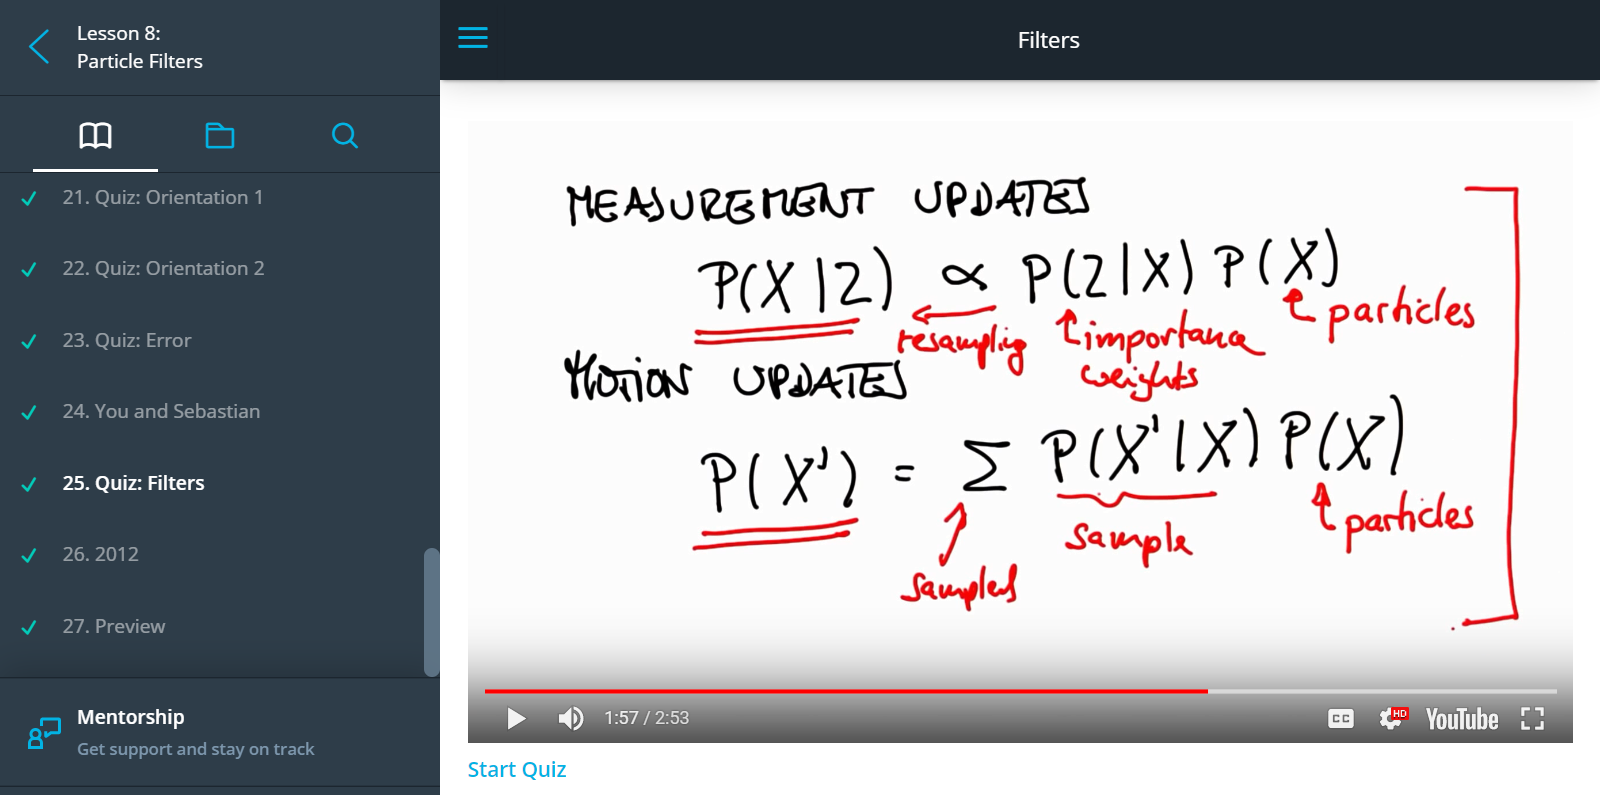 Lesson 8:
Particle Filters
21. Quiz: Orientation 1
22. Quiz: Orientation 2
23. Quiz: Error
24. You and Sebastian
25. Quiz: Filters
26. 2012
27. Preview
Mentorship
Get support and stay on track
Filters
MEASUREMENT UPDATES
P(X|Z) ∝ P(Z|X) P(X)
resampling importance weights particles
MOTION UPDATES
P(X') = Σ P(X'|X) P(X)
samples sample particles
1:57 / 2:53
CC HD YouTube
Start Quiz